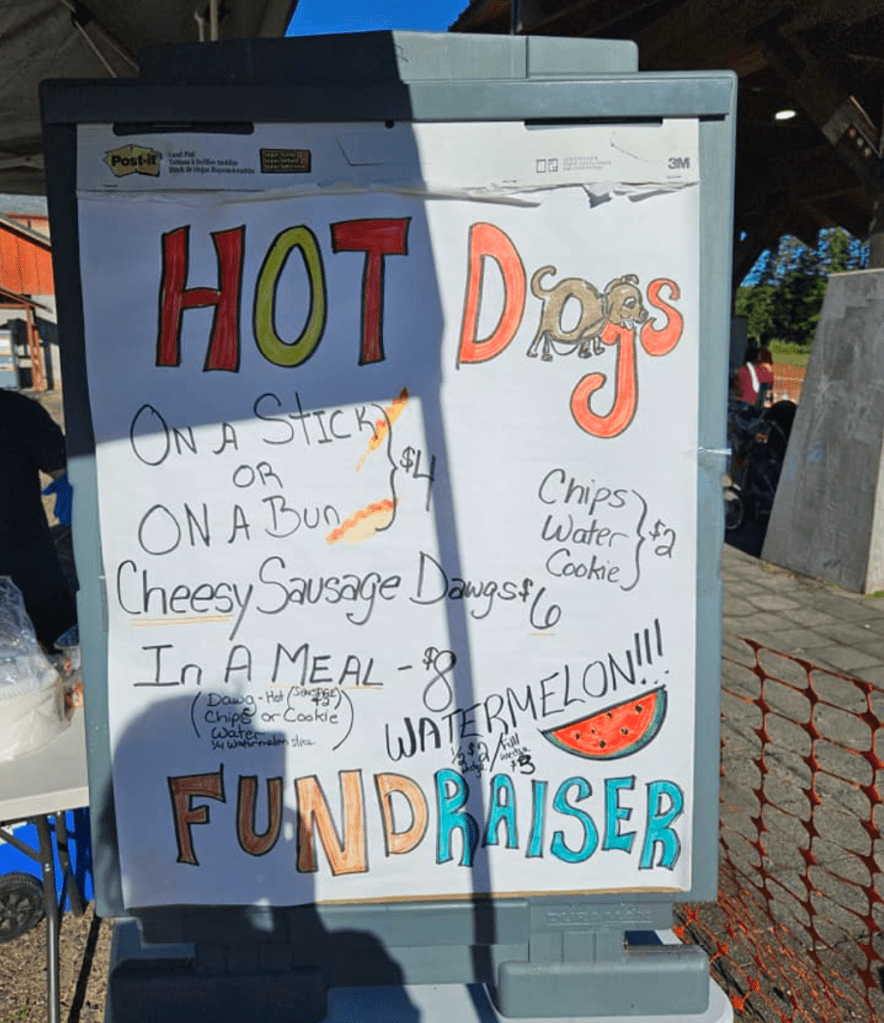 Post-it
3M
HOT Dogs
ON A STICK
OR
ON A Bun
$4
Chips
Water
Cookie
$2
Cheesy Sausage Dawgs $6
In A MEAL - $8
(Dawg - Hot /
Chips or Cookie
Water
1/4 watermelon slice)
WATERMELON!!!
1/2 $2 / Full
wedge $3
FUNDRAISER